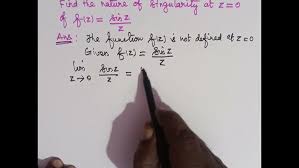 Find the nature of singularity at z=0
of f(z) = sinz/z
Ans: The function f(z) is not defined at z=0
Given f(z) = sinz/z
lim z→0 sinz/z =